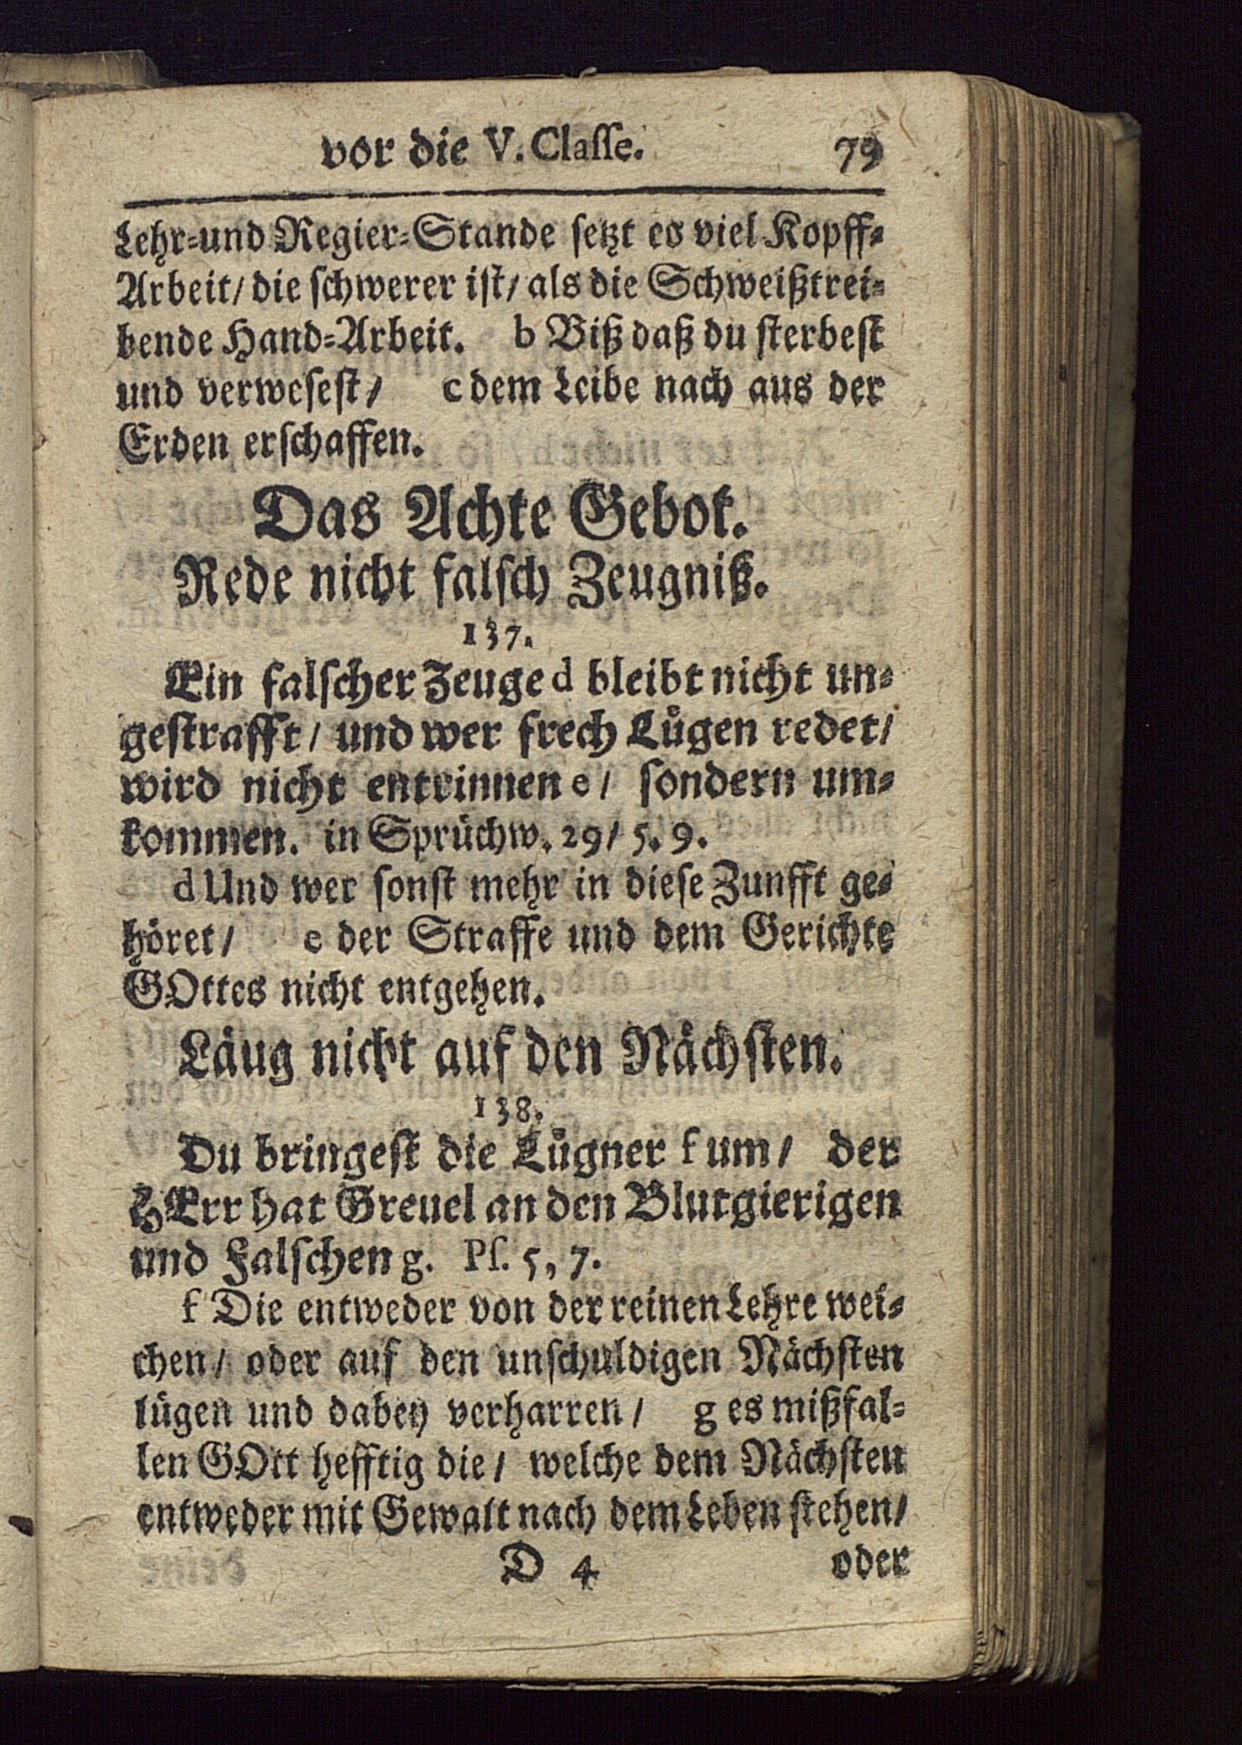 vor die V. Classe. 79
Lehr-und Regier-Stande setzt es viel Kopff-
Arbeit/ die schwerer ist/ als die Schweißtrei-
bende Hand-Arbeit. b Biß daß du sterbest
und verwesest/ c dem Leibe nach aus der
Erden erschaffen.
Das Achte Gebot.
Rede nicht falsch Zeugniß.
137.
Ein falscher Zeuge d bleibt nicht un-
gestrafft/ und wer frech Lügen redet/
wird nicht entrinnen e/ sondern um-
kommen. in Sprüchw. 29/ 5. 9.
d Und wer sonst mehr in diese Zunfft ge-
höret/ e der Straffe und dem Gerichte
GOttes nicht entgehen.
Läug nicht auf den Nächsten.
138.
Du bringest die Lügner f um/ der
HErr hat Greuel an den Blutgierigen
und Falschen g. Ps. 5, 7.
f Die entweder von der reinen Lehre wei-
chen/ oder auf den unschuldigen Nächsten
lügen und dabey verharren/ g es mißfal-
len GOtt hefftig die/ welche dem Nächsten
entweder mit Gewalt nach dem Leben stehen/
D 4 oder